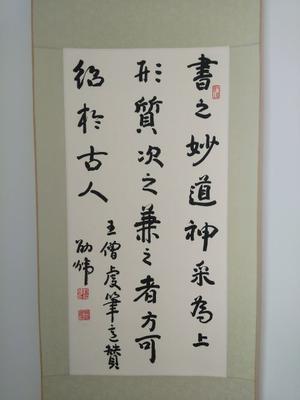 書之妙道神采為上
形質次之兼之者方可
紹於古人
王僧虔筆意贊